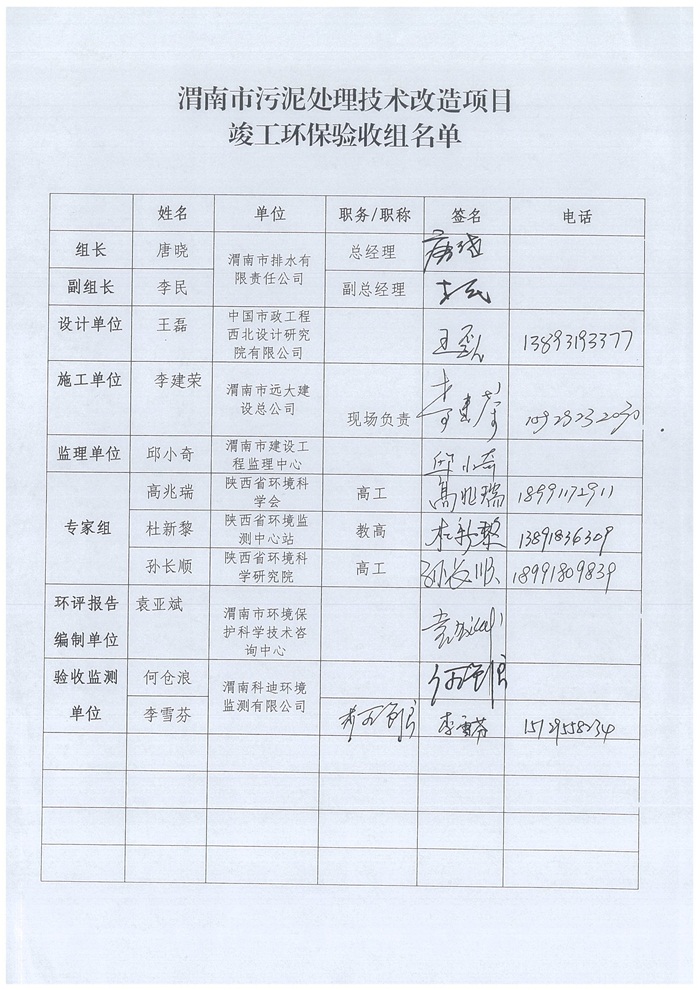 渭南市污泥处理技术改造项目
竣工环保验收组名单
姓名 单位 职务/职称 签名 电话
组长 唐晓 渭南市排水有限责任公司 总经理 唐晓
副组长 李民 副总经理 李民
设计单位 王磊 中国市政工程西北设计研究院有限公司 王磊 13893193377
施工单位 李建荣 渭南市远大建设总公司 现场负责 李建荣
监理单位 邱小奇 渭南市建设工程监理中心 邱小奇
专家组 高兆瑞 陕西省环境科学会 高工 高兆瑞 18991172911
杜新黎 陕西省环境监测中心站 教高 杜新黎 13891836309
孙长顺 陕西省环境科学研究院 高工 孙长顺 18991809839
环评报告编制单位 袁亚斌 渭南市环境保护科学技术咨询中心 袁亚斌
验收监测单位 何仓浪 渭南科迪环境监测有限公司
李雪芬 李雪芬 15129558234